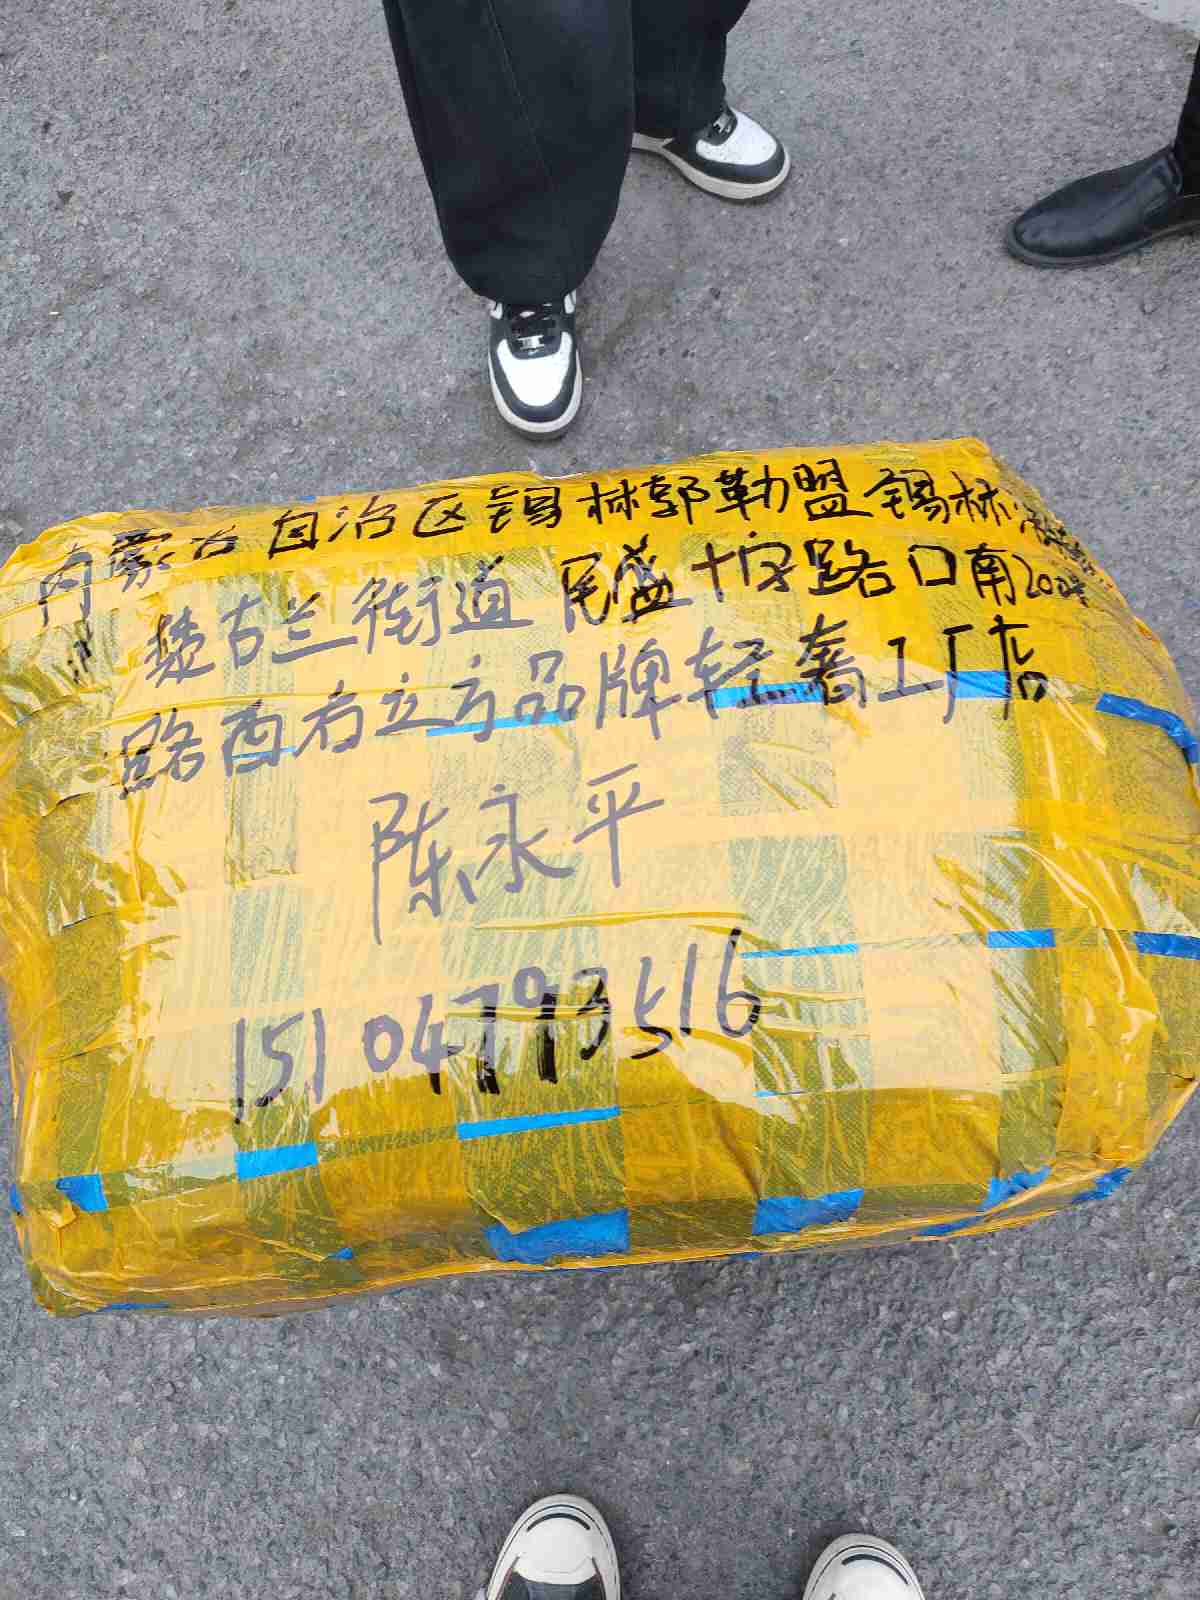 内蒙古自治区锡林郭勒盟锡林浩特
楚古兰街道民盛十字路口南200米
路西右立方品牌轻奢工厂店
陈永平
15104793516